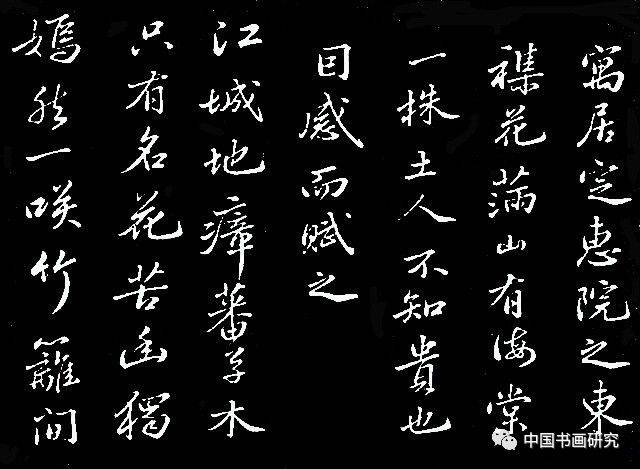 寓居定惠院之東
襍花滿山有海棠
一株土人不知貴也
因感而賦之
江城地瘴蕃草木
只有名花苦幽獨
嫣然一咲竹籬間
中国书画研究